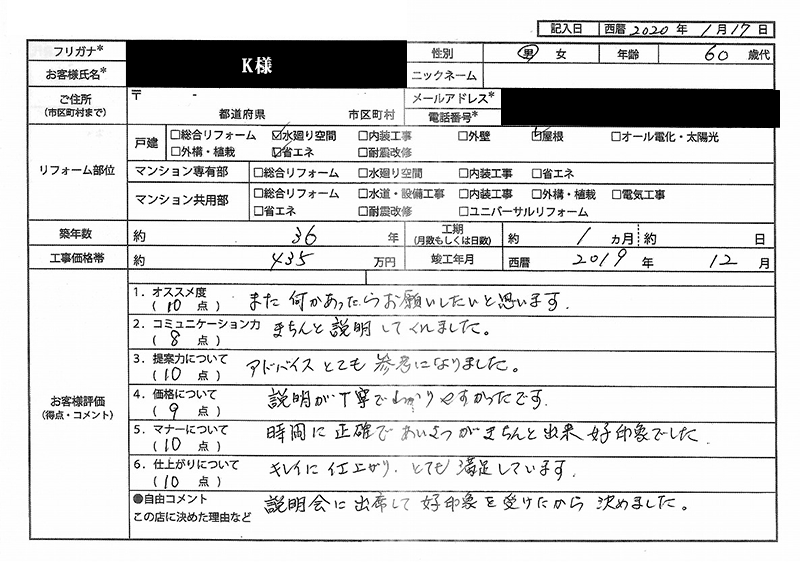 記入日 西暦 2020 年 1 月 17 日
フリガナ* K様 性別 男 女 年齢 60 歳代
お客様氏名* ニックネーム
ご住所 (市区町村まで) 〒 - 都道府県 市区町村 メールアドレス*
電話番号*
リフォーム部位 戸建 □総合リフォーム ☑水廻り空間 □内装工事 □外壁 ☑屋根 □オール電化・太陽光
□外構・植栽 ☑省エネ □耐震改修
マンション専有部 □総合リフォーム □水廻り空間 □内装工事 □省エネ
マンション共用部 □総合リフォーム □水道・設備工事 □内装工事 □外構・植栽 □電気工事
□省エネ □耐震改修 □ユニバーサルリフォーム
築年数 約 36 年 工期 (月数もしくは日数) 約 1 ヵ月 約 日
工事価格帯 約 435 万円 竣工年月 西暦 2019 年 12 月
お客様評価 (得点・コメント)
1．オススメ度 (10 点) また何かあったらお願いしたいと思います.
2．コミュニケーション力 (8 点) きちんと説明してくれました。
3．提案力について (10 点) アドバイスとても参考になりました。
4．価格について (9 点) 説明が丁寧でわかりやすかったです.
5．マナーについて (10 点) 時間に正確であいさつがきちんと出来好印象でした.
6．仕上がりについて (10 点) キレイに仕上がり、とても満足しています.
●自由コメント この店に決めた理由など 説明会に出席して好印象を受けたから決めました。